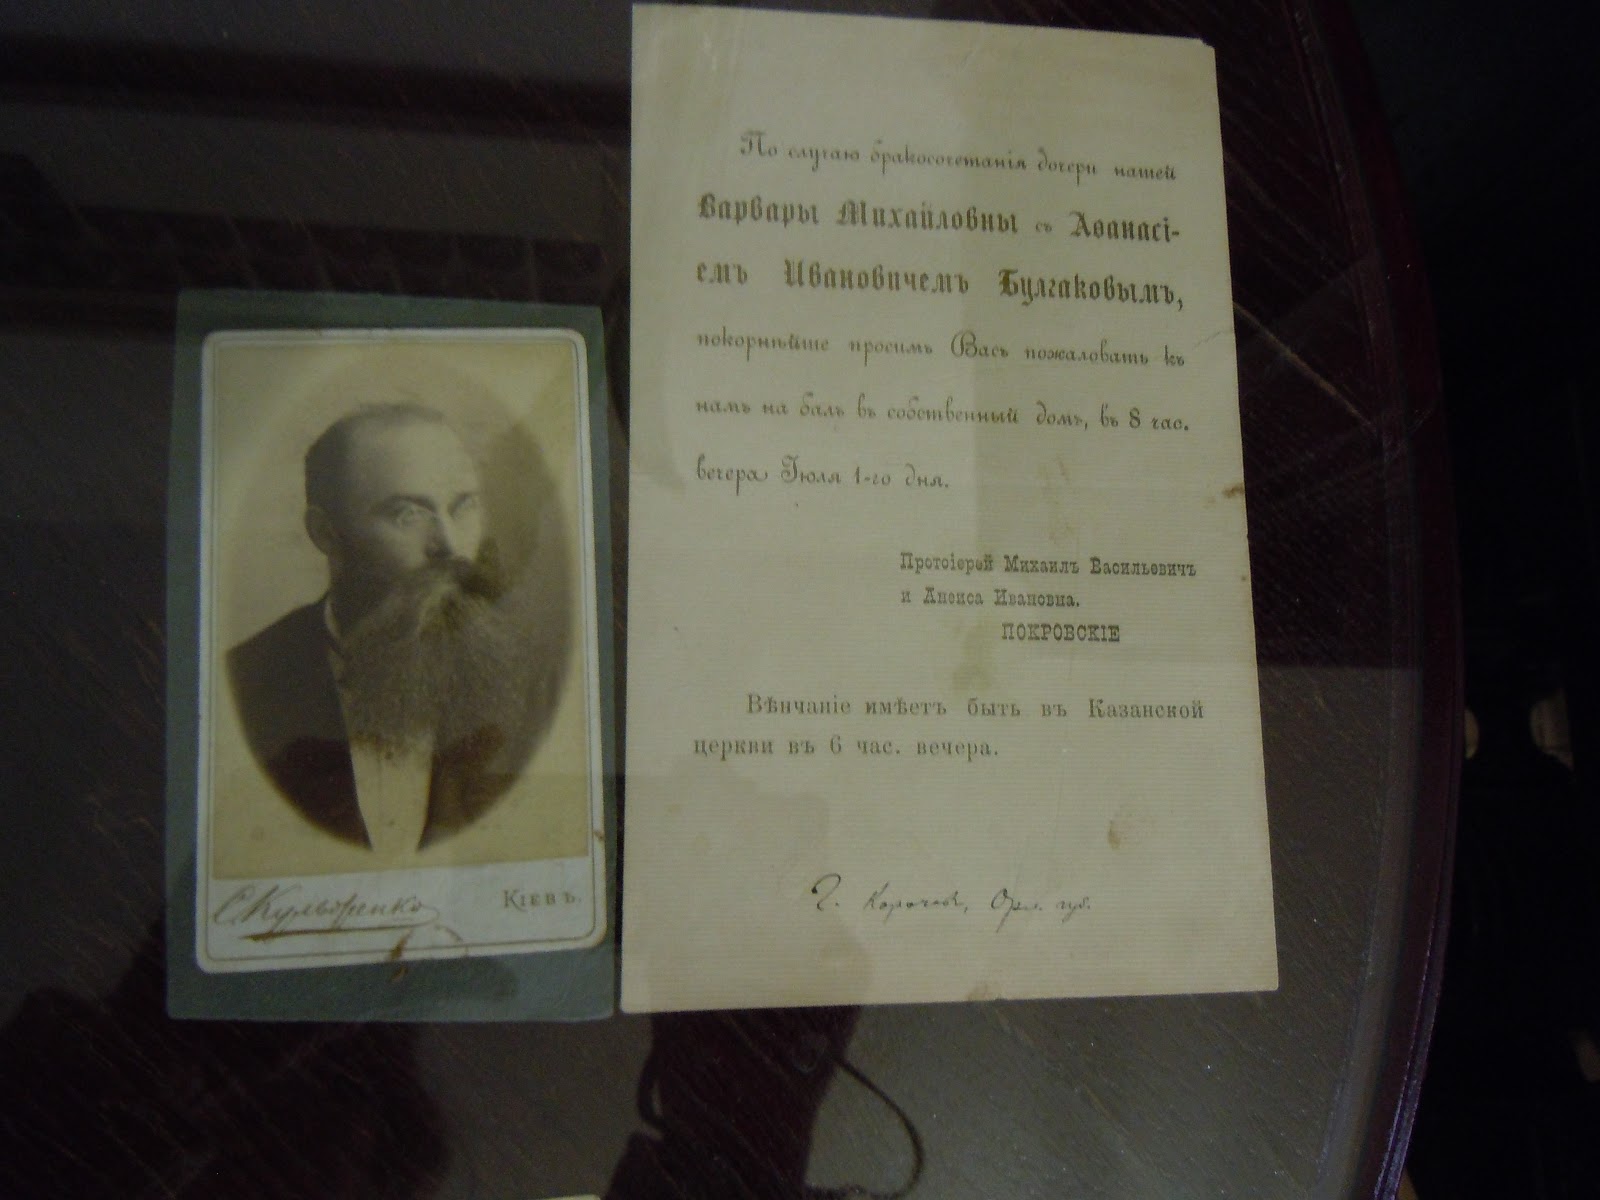 По случаю бракосочетанія дочери нашей
Варвары Михайловны съ Аѳанасі-
емъ Ивановичемъ Булгаковымъ,
покорнѣйше просимъ Васъ пожаловать къ
намъ на балъ въ собственный домъ, въ 8 час.
вечера Іюля 1-го дня.
Протоіерей Михаилъ Васильевичъ
и Анѳиса Ивановна.
ПОКРОВСКІЕ
Вѣнчаніе имѣетъ быть въ Казанской
церкви въ 6 час. вечера.
Г. Карачевъ, Орл. губ.
С. Кульженко
КІЕВЪ.